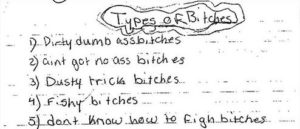 Types of Bitches
1) Dirty dumb assbitches
2) aint got no ass bitches
3) Dusty trick bitches
4) Fishy bitches
5) dont know how to figh bitches